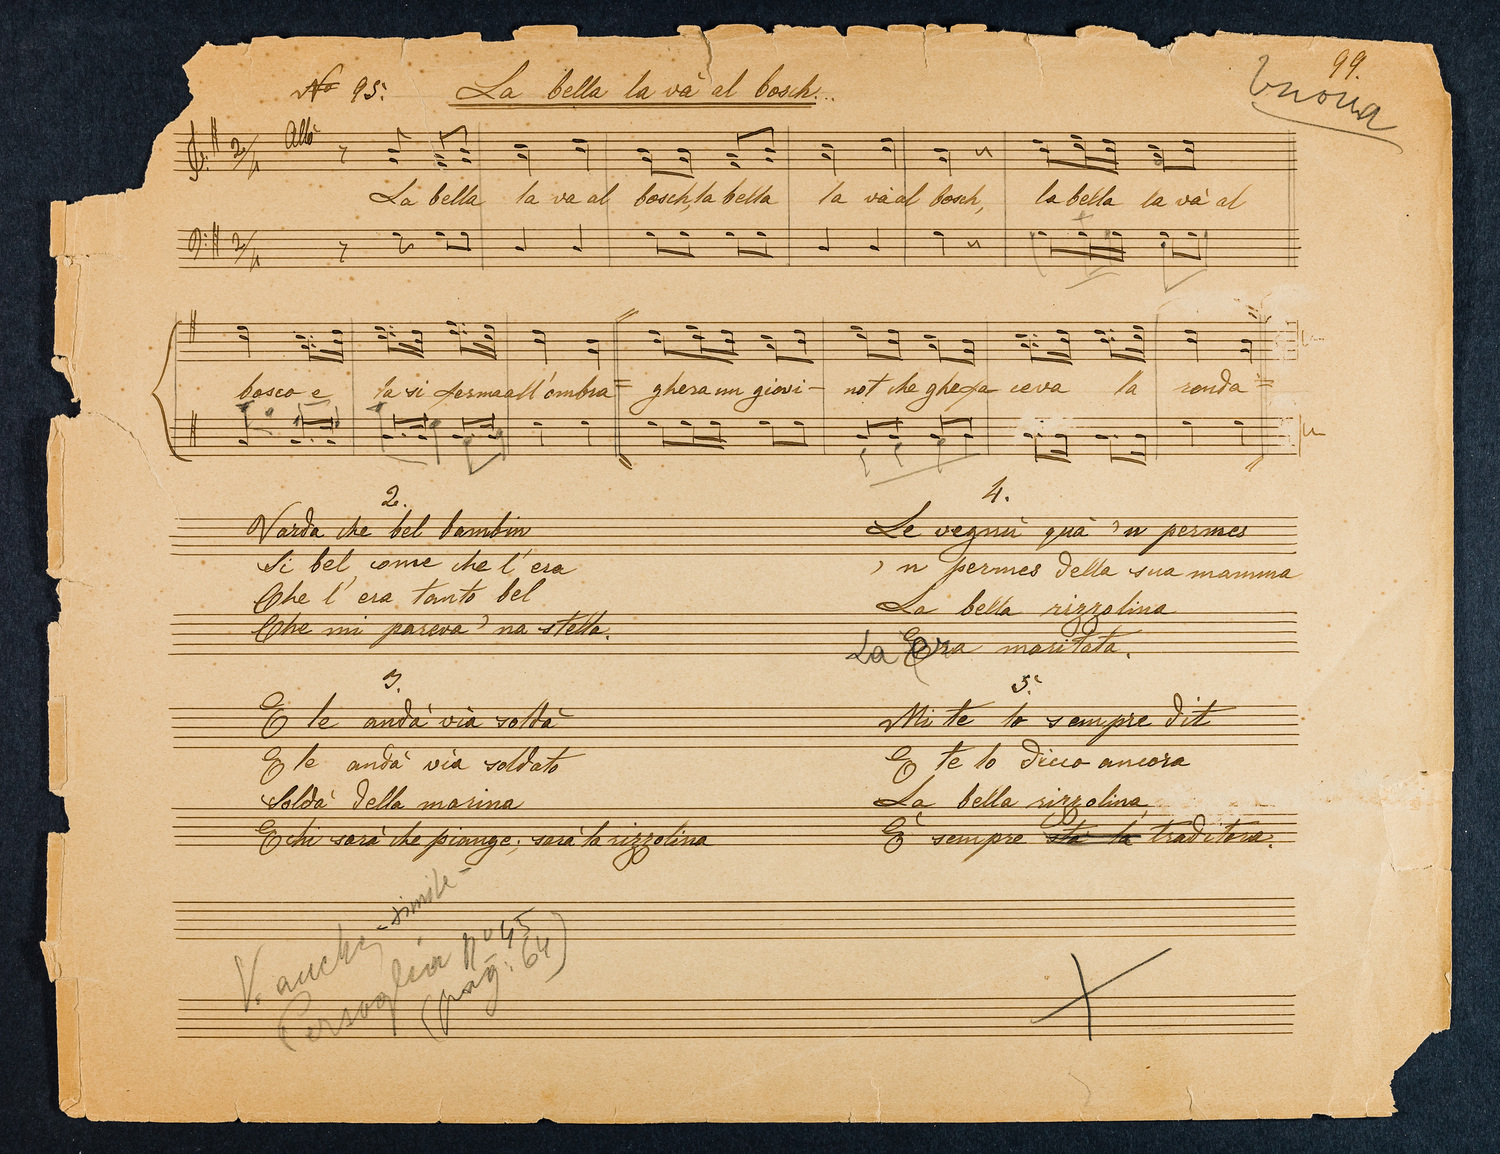 99.
buona
No 95. La bella la và al bosch...
Allo
La bella la va al bosch, la bella la và al bosch, la bella la và al
bosco e la si ferma all'ombra = ghera un giovi- not che ghe fa ceva la ronda =
2.
Varda che bel bambin
Si bel come che l'era
Che l'era tanto bel
Che mi pareva 'na stella.
3.
E le andà via soldà
E le andà via soldato
Soldà della marina
E chi sarà che piange, sarà la rizzolina
4.
Le vegnù quà 'n permes
'n permes della sua mamma
La bella rizzolina
La Era maritata.
5.
Mi te lo sempre dit
E te lo dicco ancora
La bella rizzolina
E' sempre sta la traditora.
V. anche - simile -
Cersoglia no 45
(pag. 64)